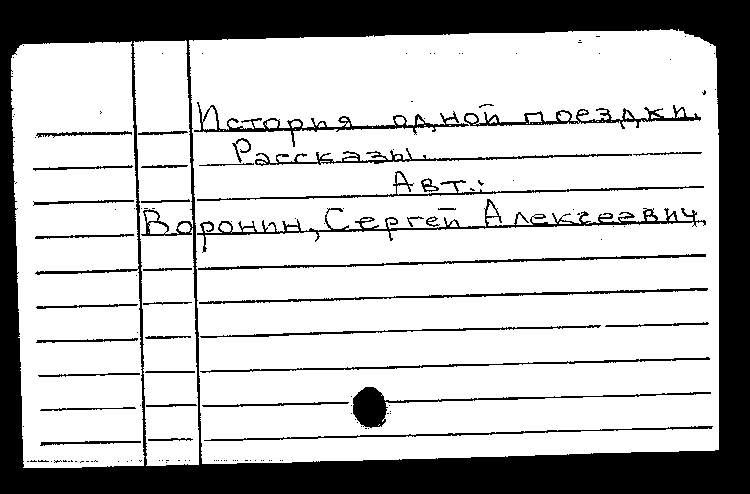 История одной поездки.
Рассказы.
Авт.:
Воронин, Сергей Алексеевич.